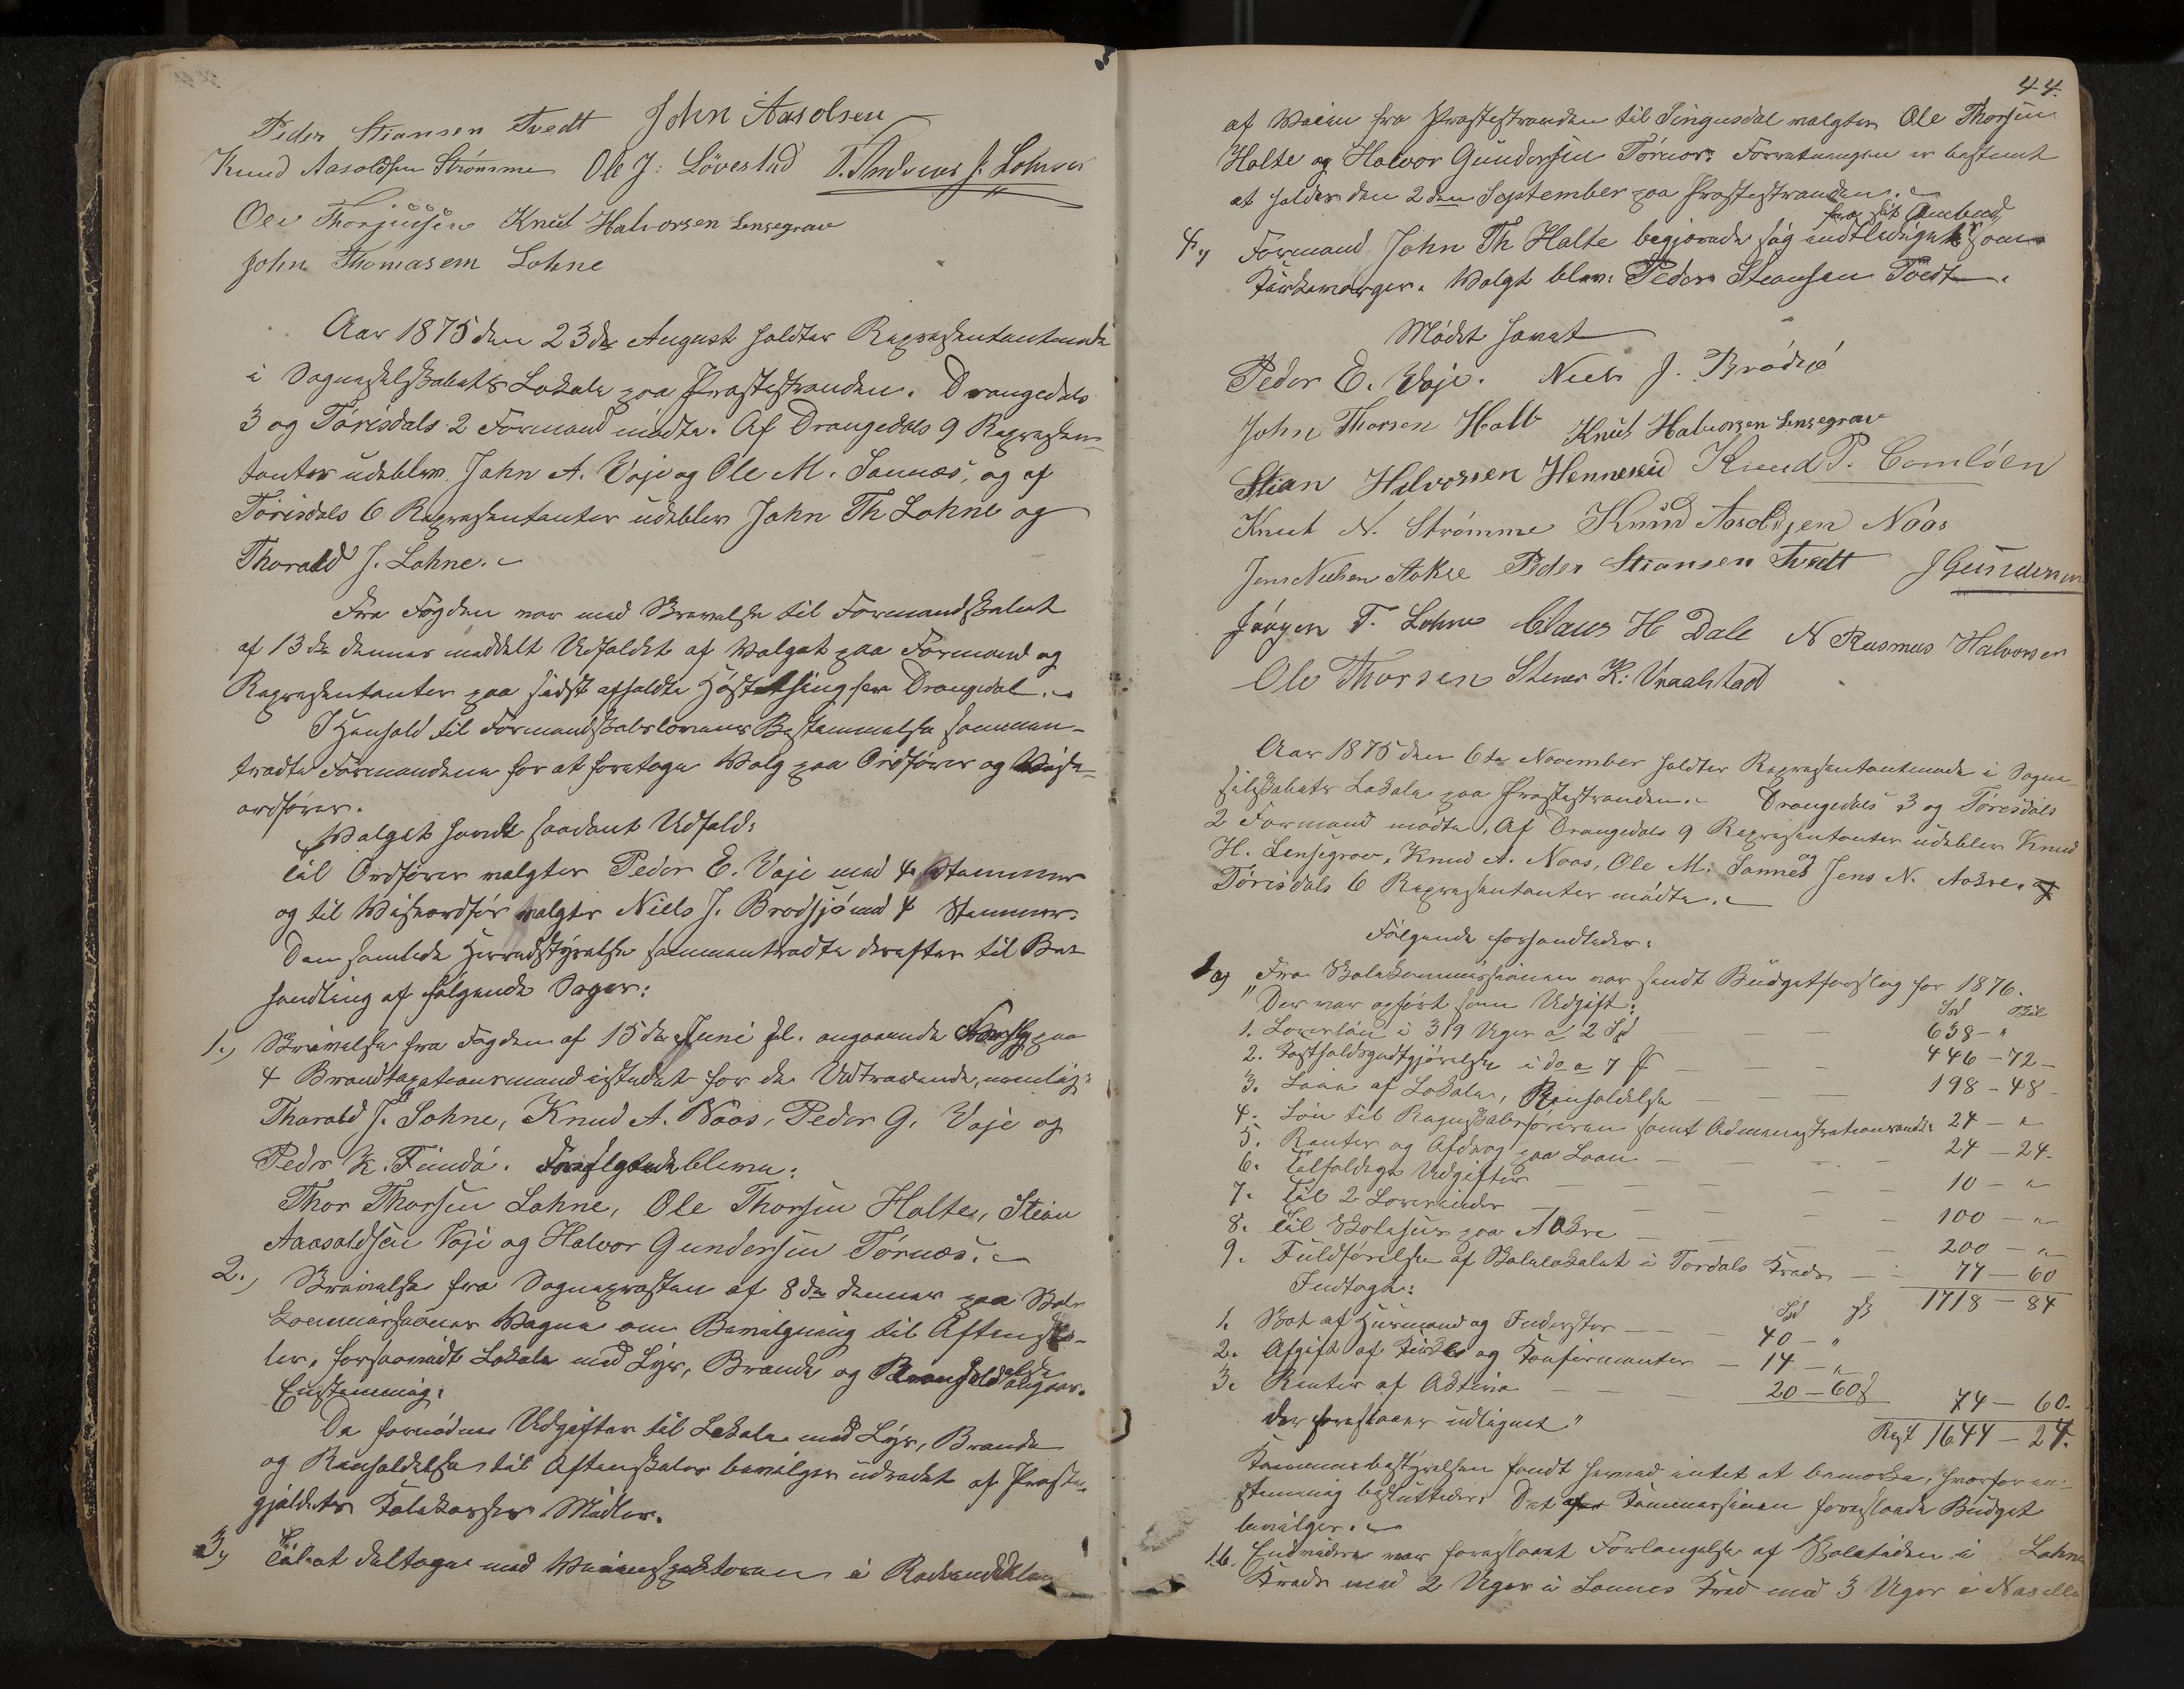 Peder Stiansen Tvedt John Aasolsen
Knud Aasoldsen Strömme Ole J: Lövestad T. Andreas J. Lohne
Ole Thorjussen Knut Halvorsen Lensegrav
John Thomasem Lohne
Aar 1875 den 23de August holdtes Repræsentantmøde
i Sogneselskabets Lokale paa Præstestranden. Drangedals
3 og Tørisdals 2 Formænd mødte. Af Drangedals 9 Repræsen-
tanter udeblev John A. Voje og Ole M. Sannæs, og af
Tørisdals 6 Repræsentanter udeblev John Th Lohne og
Thorald J. Lohne.
Fra Fogden var med Skrivelse til Formandskabet
af 13de dennes meddelt Udfaldet af Valget paa Formænd og
Repræsentanter paa sidst afholdte Høstthing for Drangedal.
I Henhold til Formandskabslovens Bestemmelse sammen-
traadte Formændene for at foretage Valg paa Ordfører og Vise-
ordfører.
Valget havde saadant Udfald:
Til Ordfører valgtes Peder E. Voje med 4 Stemmer
og til Viseordfør valgtes Niels J. Brødsjø med 4 Stemmer.
Den samlede Herredstyrelse sammentraadte derefter til Be-
handling af følgende Sager:
1.) Skrivelse fra Fogden af 15de Juni sl. angaaende Forslag paa
4 Brandtaxationsmænd istedet for de Udtrædende, nemlig:
Thorald J. Lohne, Knud A. Naas, Peder G. Voje og
Peder K. Finda. bleve:
Thor Thorsen Lohne, Ole Thorsen Holte, Stian
Aasoldsen Voje og Halvor Gundersen Törnæs.
2.) Skrivelse fra Sognepræsten af 8de dennes paa Skole-
kommissionens Vegne om Bevilgning til Aftensko-
ler, forsaavidt Lokale med Lys, Brænde og Renholdelse angaar.
Enstemmig:
De fornødne Udgifter til Lokale med Lys, Brænde
og Renholdelse til Aftenskoler bevilges udredet af Præste-
gjeldets Skolekasses Midler.
3.) Til at deltage med Veiinspektoren i
44.
af Veien fra Præstestranden til Tingusdal valgtes Ole Thorsen
Holte og Halvor Gundersen Törnæs. Forretningen er bestemt
at holdes den 2den September paa Præstestranden.
4.) Formand John Th Holte begjærede sig entlediget fra sit Ombud som
Kirkeværger. Valgt blev: Peder Stiansen Tvedt.
Mødet hævet
Peder E. Voje. Niels J. Brödsjö
John Thorsen Holt Knut Halvorsen Lensegrav
Stian Halvorsen Henneseid Knud P.
Knut N. Strømme Knud Aasoldsen Naas
Jens Nielsen Aakre Peder Stiansen Tvedt J Gundersen
Jörgen T. Lohne Claus H Dale N Rasmus Halvorsen
Ole Thorsen Stener K: Vraalstad
Aar 1875 den 6te November holdtes Repræsentantmøde i Sogne-
selskabets Lokale paa Præstestranden. Drangedals 3 og Tørisdals
2 Formænd mødte. Af Drangedals 9 Repræsentanter udeblev Knud
H. Lensegrav, Knud A. Naas, Ole M. Sannes og Jens N. Aakre. Af
Tørisdals 6 Repræsentanter mødte.
Følgende forhandledes:
1 a) Fra Skolekommissionen var sendt Budgetforslag for 1876.
"Der var opført som Udgift: Spd Skil
1. Lærerløn i 319 Uger a 2 Spd — — 638 - "
2. Kostholdsgodtgjørelse i do a 7 — — 446 - 72 -
3. Leie af Lokale, Renholdelse — — 198 - 48 -
4. Løn til Regnskabsføreren samt Administrationsudg. 24 - "
5. Renter og Afdrag paa Laan — — 24 - 24 -
6. Tilfældige Udgifter — — 10 - "
7. Til 2 Lærerinder — — 100 - "
8. Til Skolehus paa Aakre — — 200 - "
9. Fuldførelse af Skolelokalet i Tordals Kreds — 77 - 60
1718 - 84
Indtægt: Spd
1. Skat af Husmænd og Inderster — — 40 - "
2. Afgift af Kirke og Konfirmanter — 14 - "
3. Renter af Aktiva — — 20 - 60 74 - 60.
der foreslaaes udlignet" Rest 1644 - 24.
Kommunebestyrelsen fandt herved intet at bemærke, hvorfor en-
stemmig besluttedes: Det af Kommissionen foreslaaede Budget
bevilges.
1 b. Endvidere var foreslaaet Forlængelse af Skoletiden i Lohne
Kreds med 2 Uger i Sannes Kreds med 3 Uger i